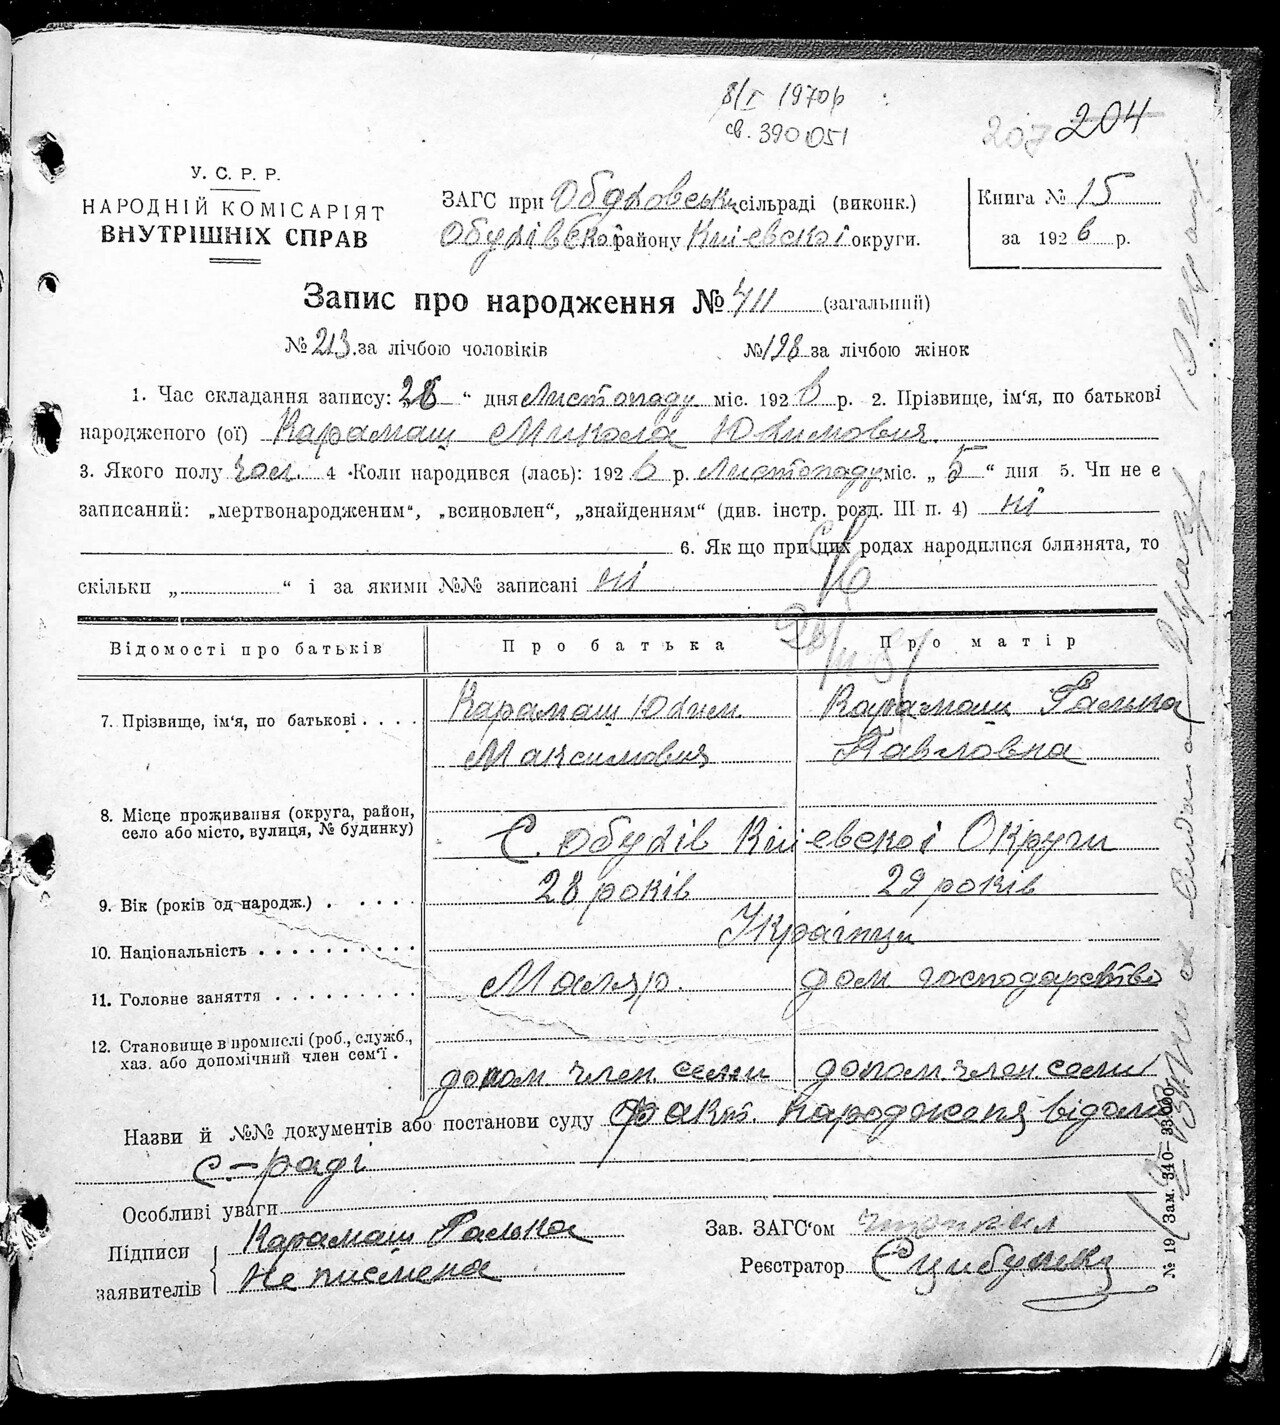 8/I 1970р
св. 390051
207 204
У. С. Р. Р.
НАРОДНІЙ КОМІСАРІЯТ
ВНУТРІШНІХ СПРАВ
ЗАГС при Обуховськ сільраді (виконк.)
Обухівскоі району Киівскоі округи.
Книга № 15
за 1926 р.
Запис про народження № 411 (загальний)
№ 213 за лічбою чоловіків № 198 за лічбою жінок
1. Час складання запису: „28“ дня Листопаду міс. 1926 р. 2. Прізвище, ім'я, по батькові
народженого (ої) Карамаш Микола Юхимович
3. Якого полу чол. 4 Коли народився (лась): 1926 р. Листопаду міс. „5“ дня 5. Чи не є
записаний: „мертвонародженим“, „всиновлен“, „знайденням“ (див. інстр. розд. III п. 4) ні
6. Як що при цих родах народилися близнята, то
скільки „ “ і за якими №№ записані ні
Відомості про батьків Про батька Про матір
7. Прізвище, ім'я, по батькові . . . . Карамаш Юхим Карамаш Галька
Максимович Павловна
8. Місце проживання (округа, район,
село або місто, вулиця, № будинку)
С. Обухів Киівскоі Округи
9. Вік (років од народж.) . . . . . 28 років 29 років
10. Національність . . . . . . . . . . Українци
11. Головне заняття . . . . . . . . . Маляр. дом господарство
12. Становище в промислі (роб., служб.,
хаз. або допомічний член сем'ї .
допом. член семи допом. член семи
Назви й №№ документів або постанови суду Факт. народженя відом
с-раді
Особливі уваги
Підписи Карамаш Галька
заявителів Не писмена
Зав. ЗАГС'ом
Реєстратор
№ 19 Зам. 340—33.000